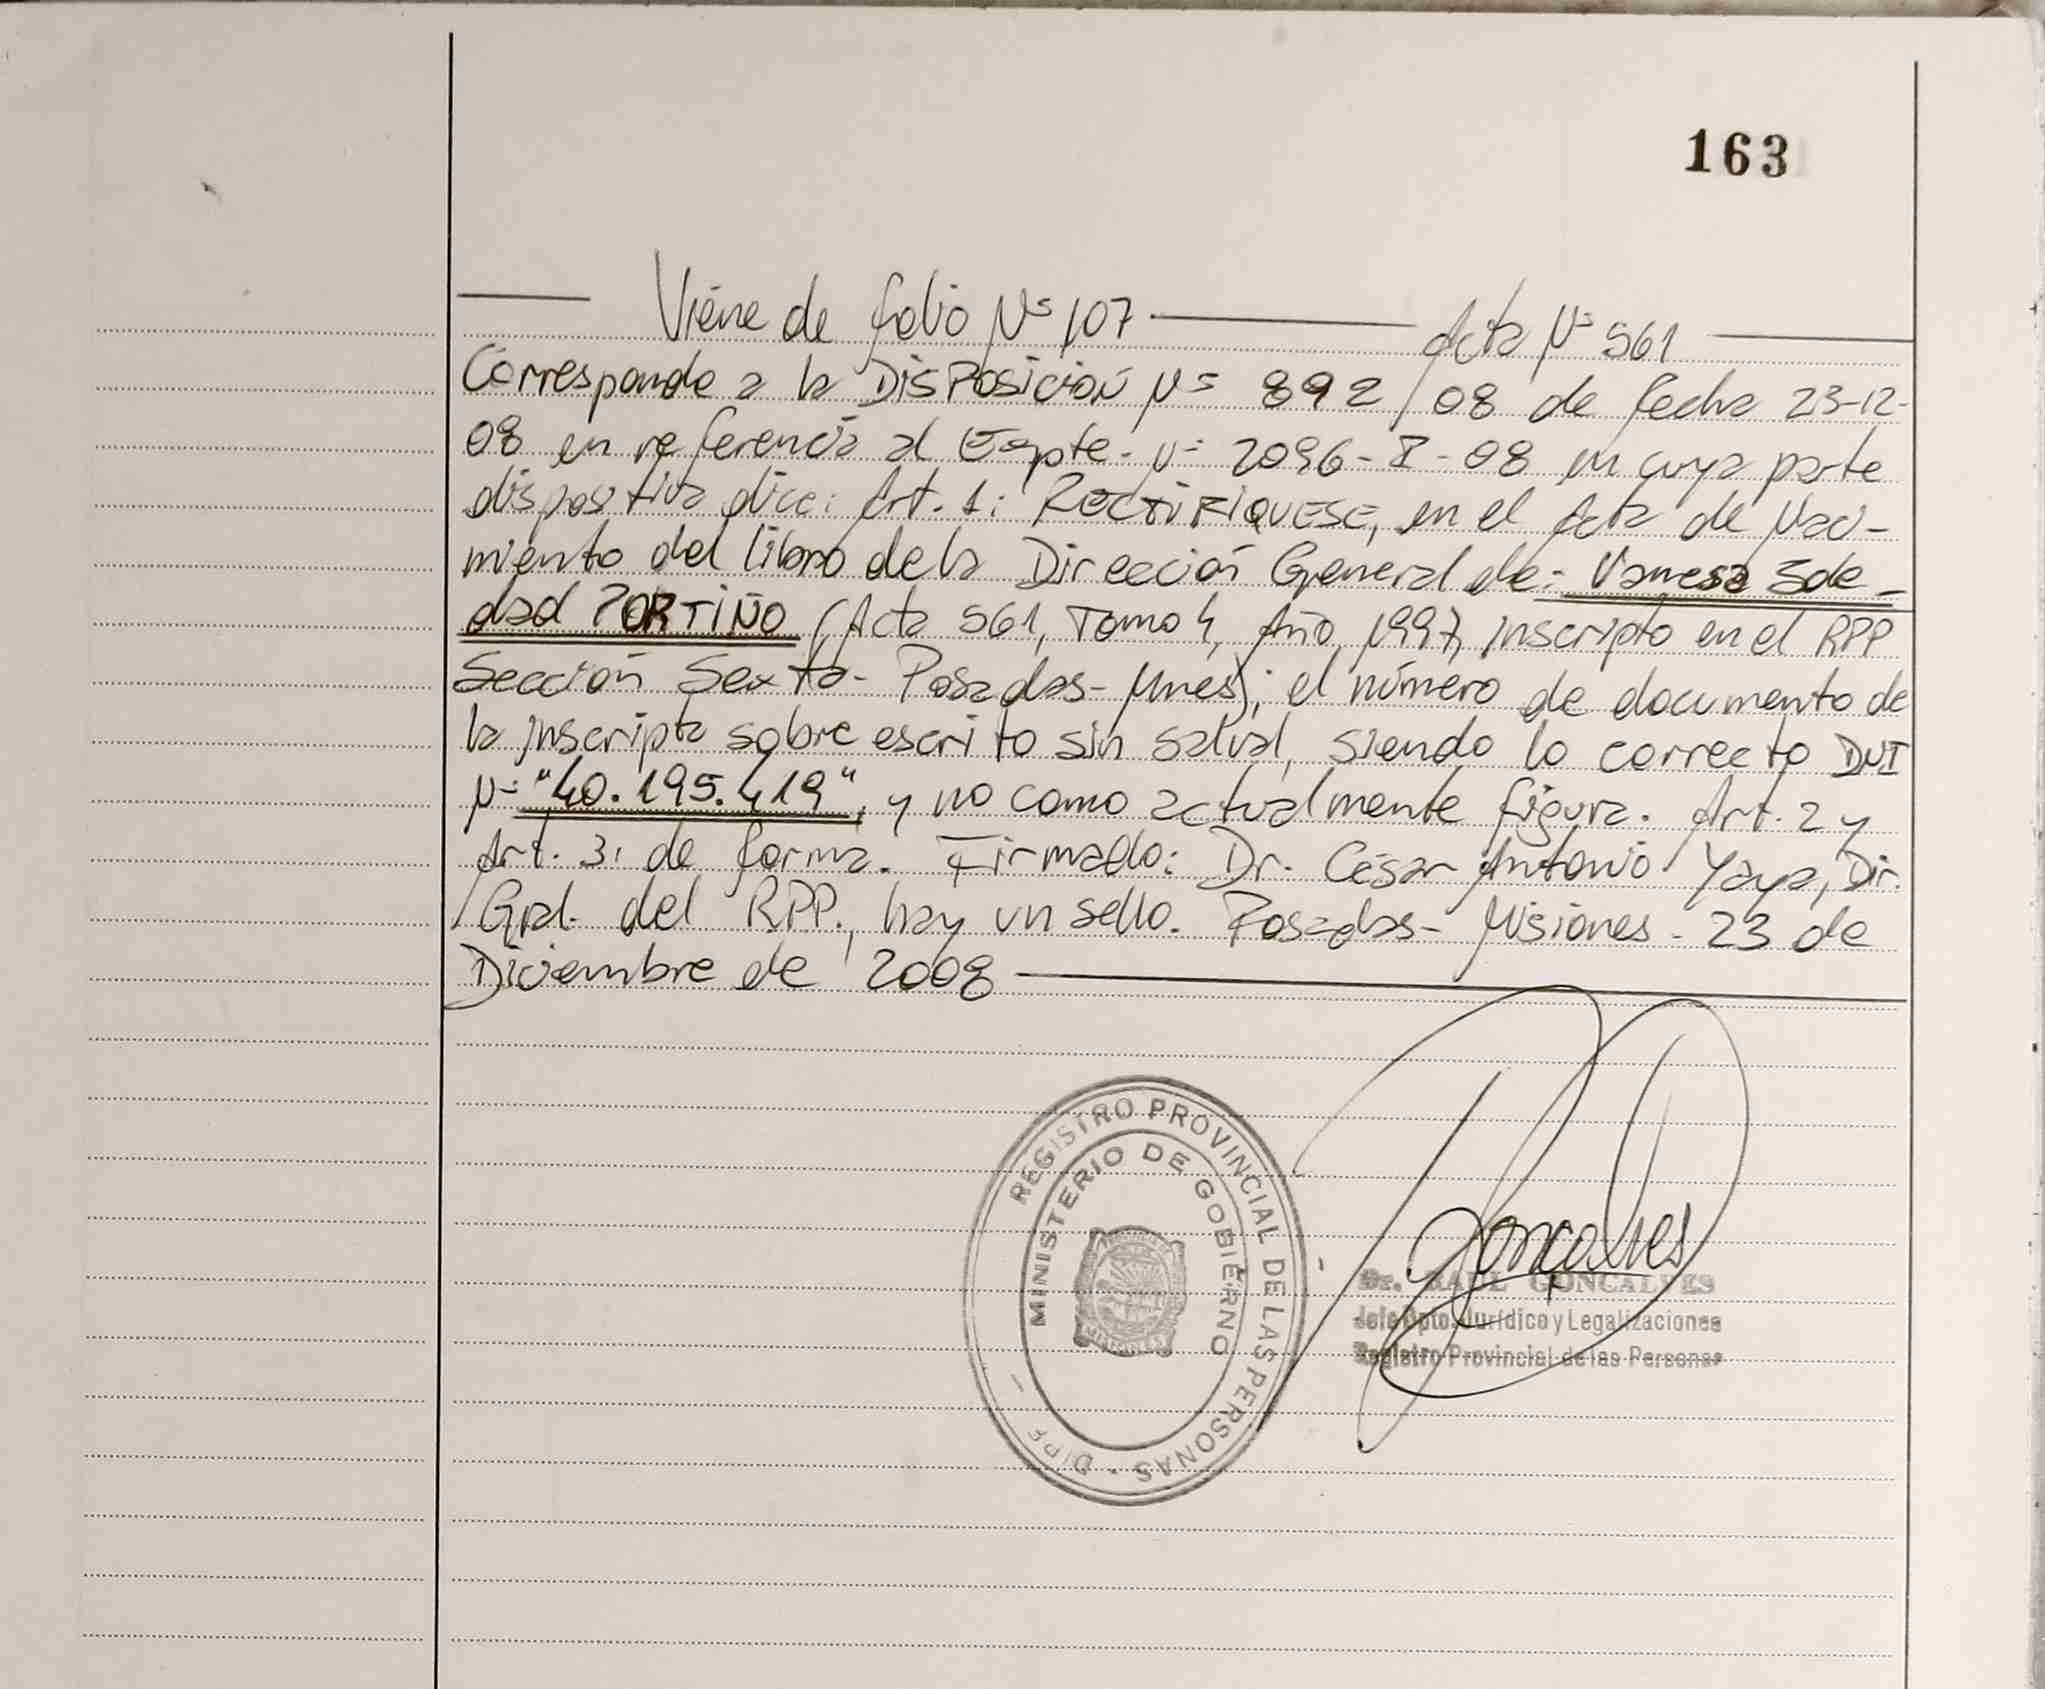 163
Viene de folio Nº 107 Acta Nº 561
Corresponde a la DISPOSICIÓN Nº 892/08 de fecha 23-12-
08 en referencia al Expte. Nº 2096-I-08 en cuya parte
dispositiva dice: Art. 1: RECTIFIQUESE, en el Acta de Naci-
miento del libro de la Dirección General de: Vanesa Sole-
dad PORTIÑO (Acta 561, Tomo 4, Año 1997, inscripto en el RPP
Sección Sexta- Posadas- Mnes); el número de documento de
la inscripta sobre escrito sin salval, siendo lo correcto DNI
Nº "40.195.419", y no como actualmente figura. Art. 2 y
Art. 3: de forma. Firmado: Dr. César Antonio Yaya, Dir.
Gral. del RPP., hay un sello. Posadas- Misiones- 23 de
Diciembre de 2008
REGISTRO PROVINCIAL DE LAS PERSONAS - DIPF -
MINISTERIO DE GOBIERNO
MISIONES
Gonçalves
Dr. RAUL GONCALVES
Jefe Dpto. Jurídico y Legalizaciones
Registro Provincial de las Personas